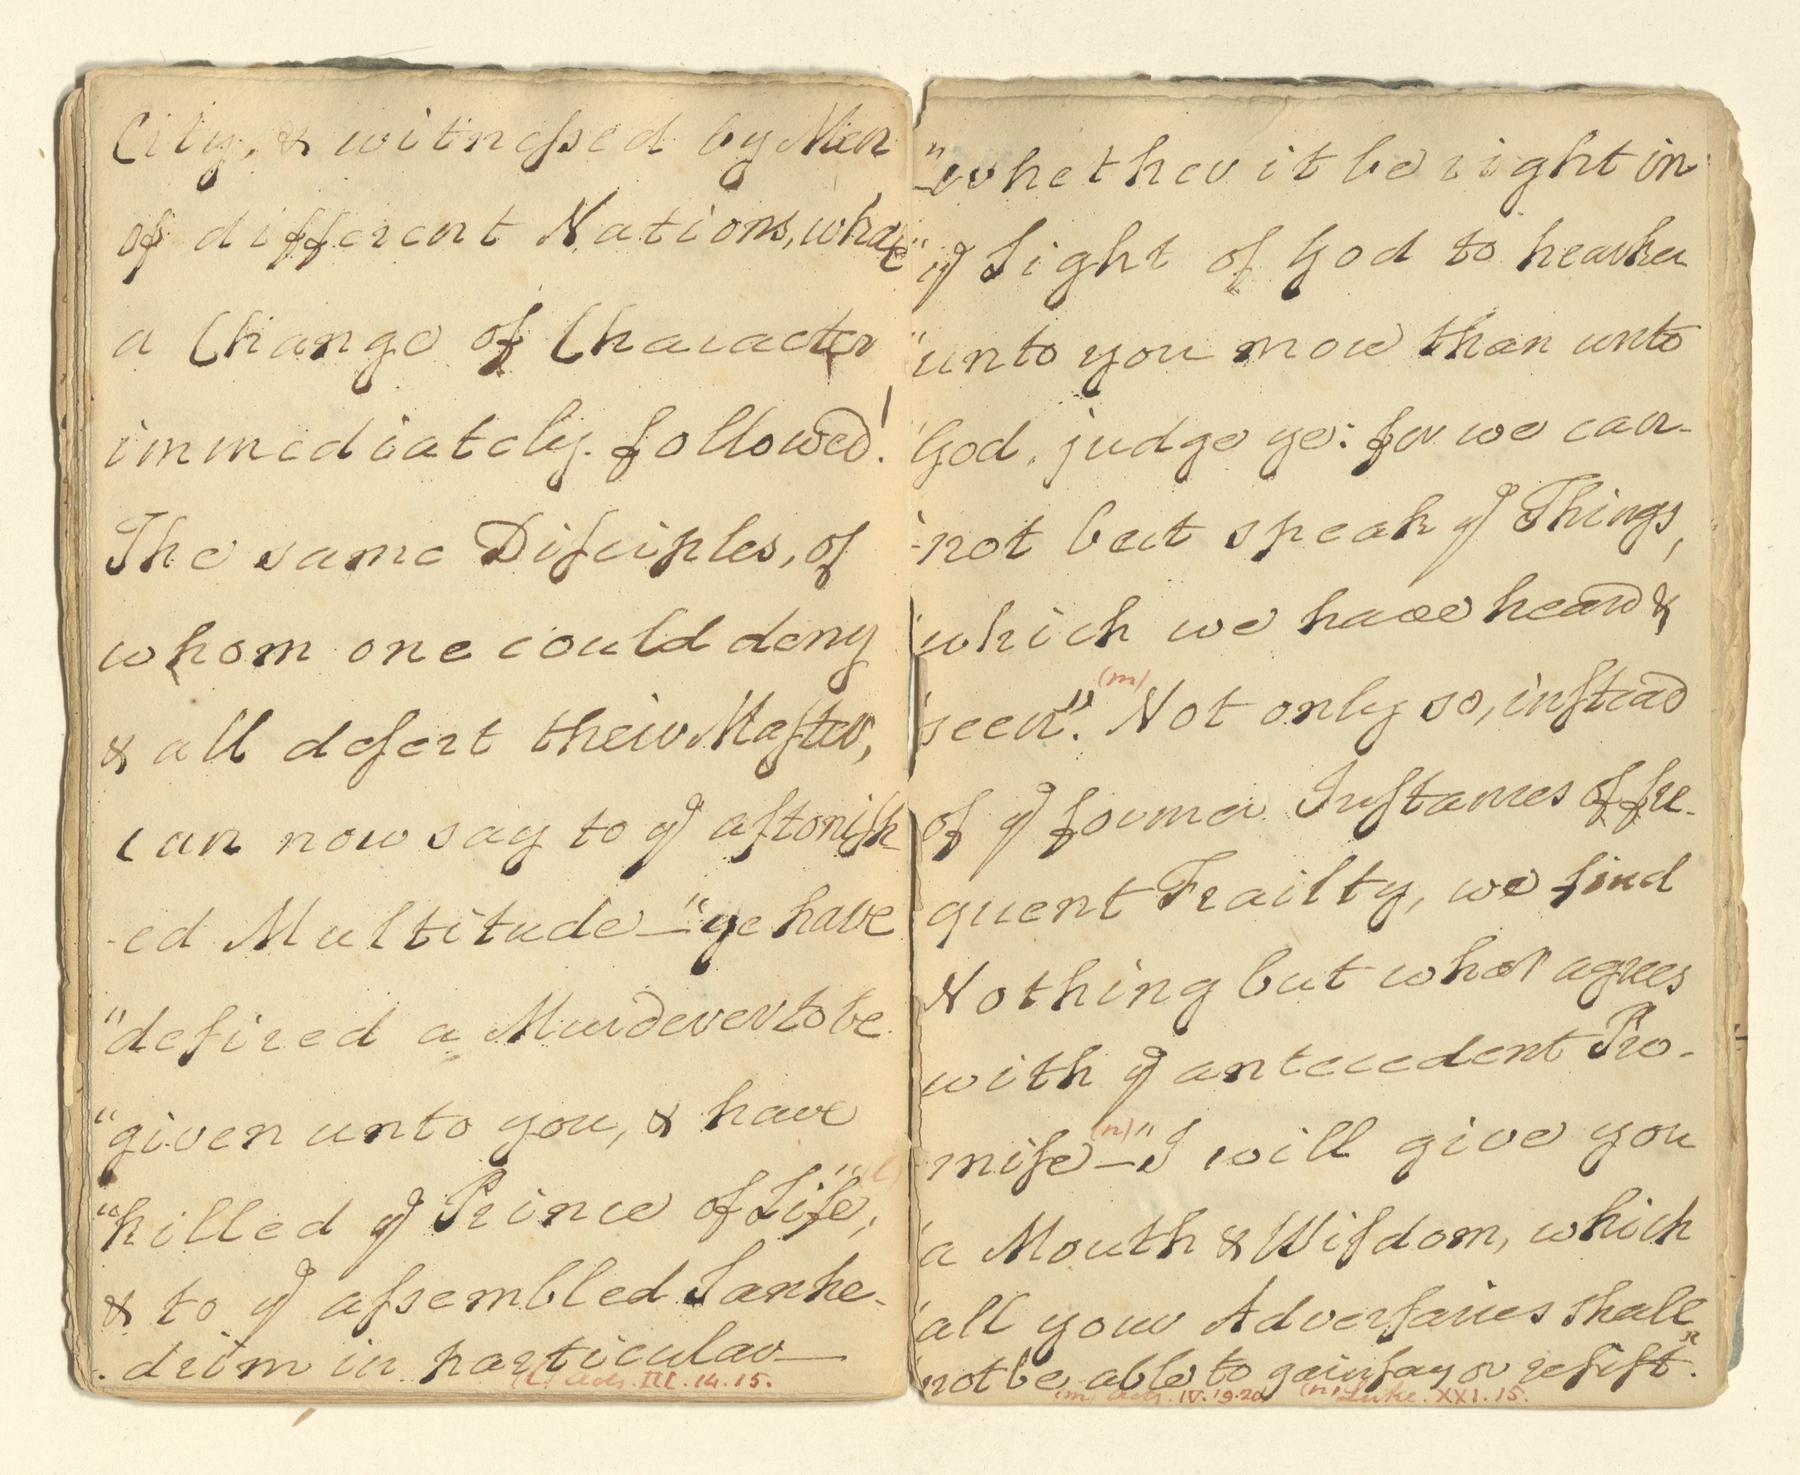 City, & witneſsed by Men
of different Nations, what
a Change of Character
immediately followed!
The same Diſciples, of
whom one could deny
& all deſert their Maſter,
can now say to yᵉ aſtoniſh
-ed Multitude—"ye have
"deſired a Murderer to be
"given unto you, & have
"killed yᵉ Prince of Life";(l)
& to yᵉ aſsembled Sanhe-
drim in particular—
(l) Acts. III. 14. 15.
"whether it be right in
"yᵉ Sight of God to hearken
"unto you more than unto
"God, judge ye: for we can-
"not but speak yᵉ Things,
"which we have heard &
"seen".(m) Not only so, inſtead
of yᵉ former Inſtances of fre-
quent Frailty, we find
Nothing but what agrees
with yᵉ antecedent Pro-
miſe(n)—"I will give you
"a Mouth & Wiſdom, which
"all your Adverſaries shall
"not be able to gainſay or reſiſt".
(m) Acts. IV. 19. 20. (n) Luke. XXI. 15.